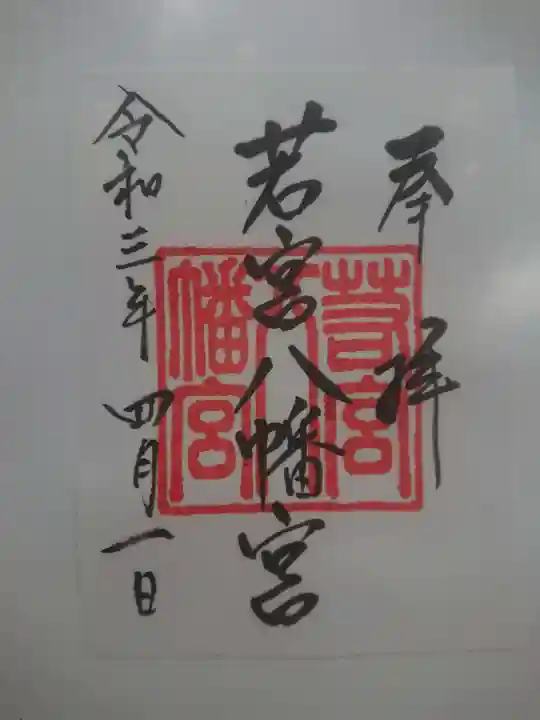 奉拝
若宮八幡宮
令和三年四月一日
若宮八幡宮